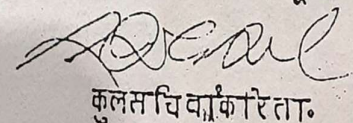 कुलसचिवांकरिता.